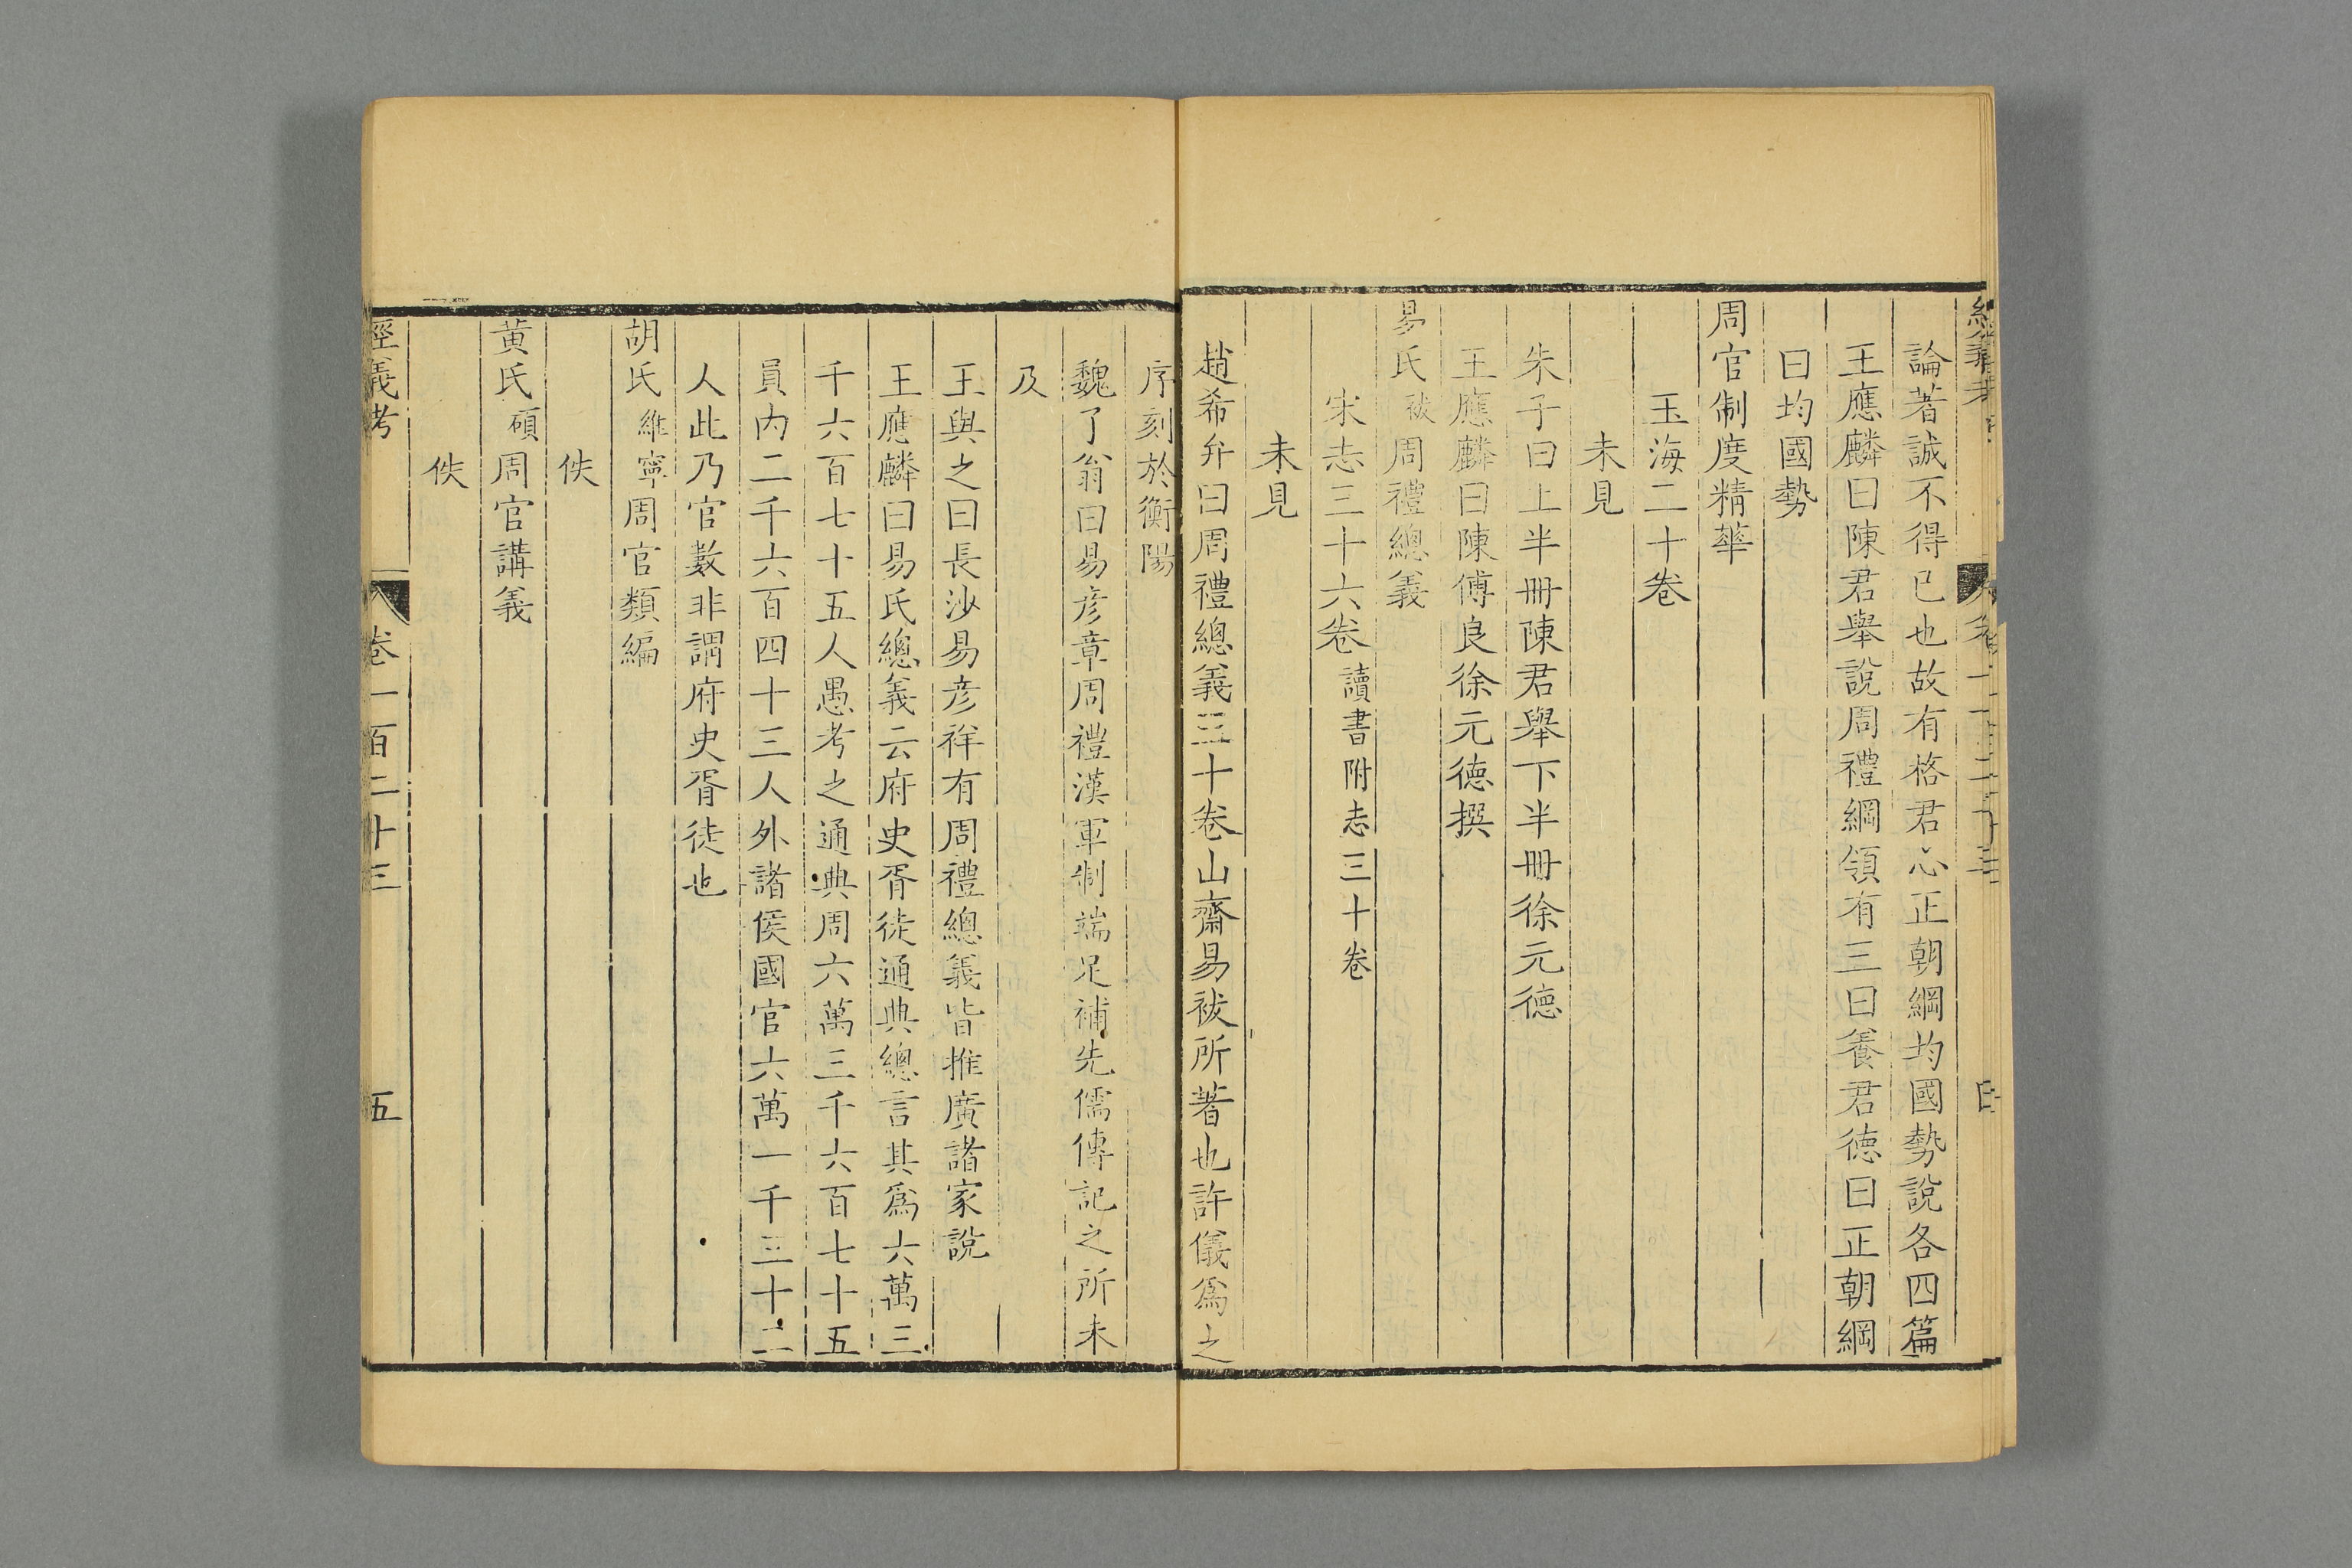 論著誠不得已也故有格君心正朝綱均國勢說各四篇
王應麟曰陳君舉說周禮綱領有三曰養君德曰正朝綱
曰均國勢
周官制度精華
玉海二十卷
未見
朱子曰上半冊陳君舉下半冊徐元德
王應麟曰陳傅良徐元德撰
易氏祓周禮總義
宋志三十六卷讀書附志三十卷
未見
趙希弁曰周禮總義三十卷山齋易祓所著也許儀爲之
序刻於衡陽
魏了翁曰易彥章周禮漢軍制端足補先儒傳記之所未
及
王與之曰長沙易彥祥有周禮總義皆推廣諸家說
王應麟曰易氏總義云府史胥徒通典總言其爲六萬三
千六百七十五人愚考之通典周六萬三千六百七十五
員内二千六百四十三人外諸侯國官六萬一千三十二
人此乃官數非謂府史胥徒也
胡氏維寧周官類編
佚
黃氏碩周官講義
佚
經義考 卷一百二十三 五